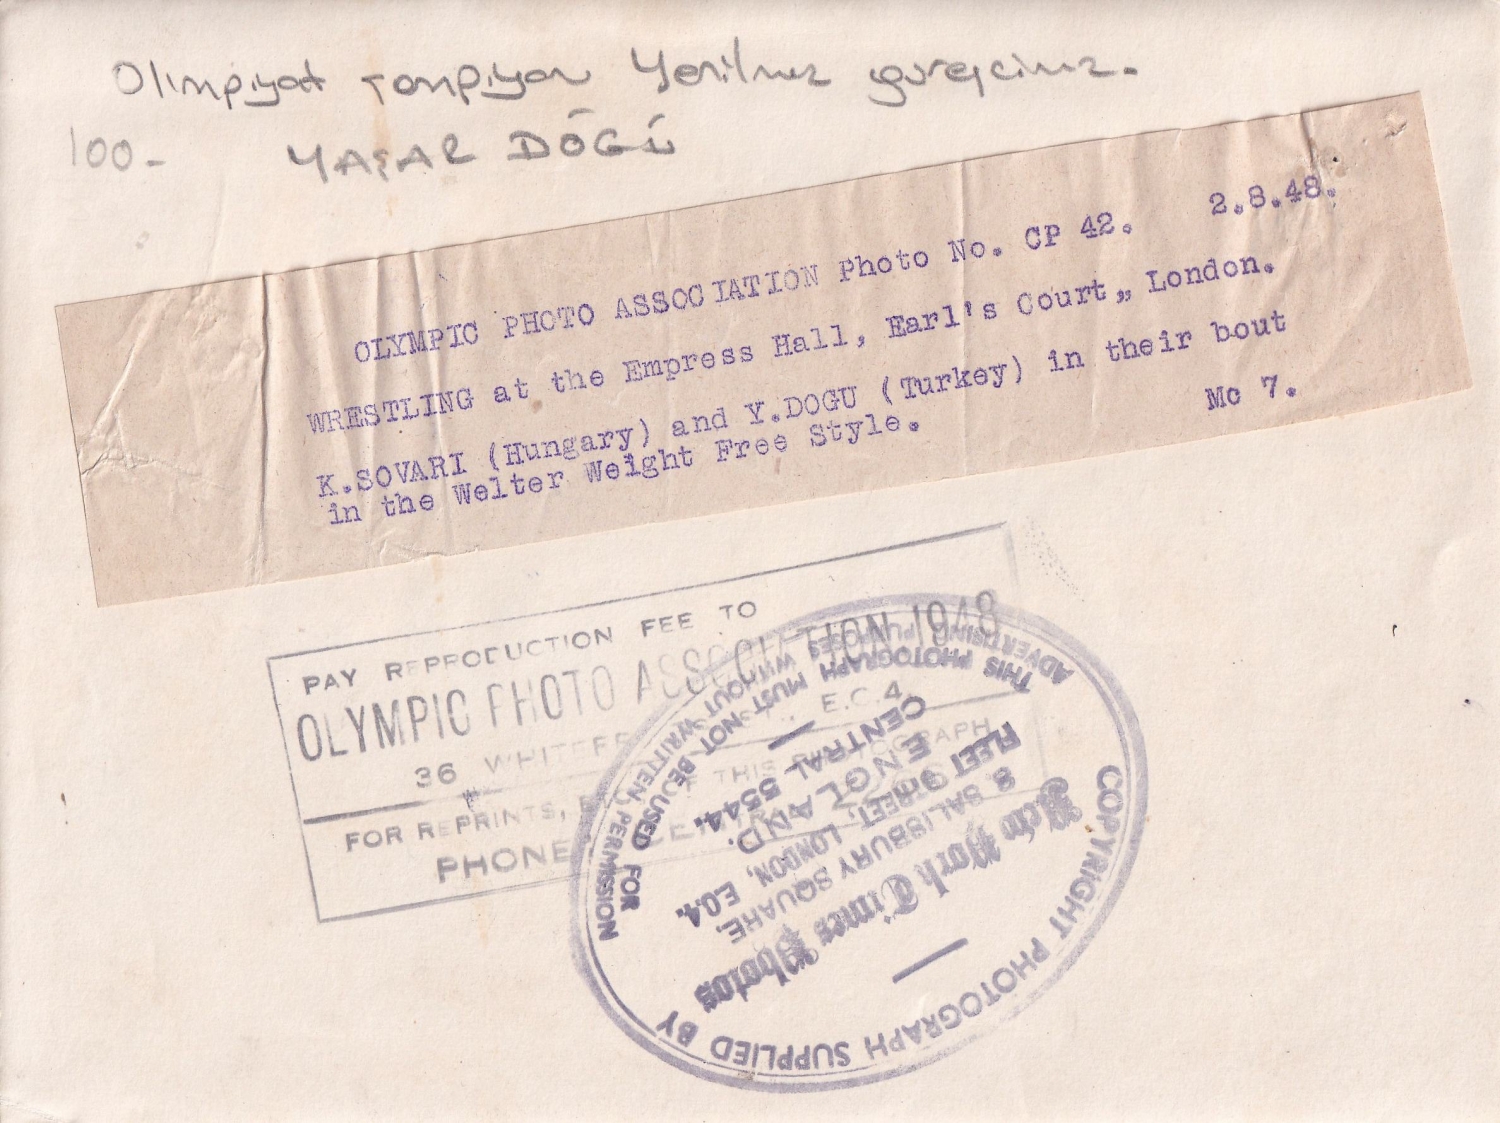 Olimpiyat şampiyon Yenilmez güreşcimiz.
100- YAŞAR DOĞU
OLYMPIC PHOTO ASSOCIATION Photo No. CP 42. 2.8.48.
WRESTLING at the Empress Hall, Earl's Court,, London.
K.SOVARI (Hungary) and Y.DOGU (Turkey) in their bout
in the Welter Weight Free Style. Mc 7.
PAY REPRODUCTION FEE TO
OLYMPIC PHOTO ASSOCIATION 1948
36 E.C.4.
FOR REPRINTS, THIS PHOTOGRAPH
PHONE
COPYRIGHT PHOTOGRAPH SUPPLIED BY
New York Times Photos
8, SALISBURY SQUARE,
FLEET STREET, LONDON, E.C.4.
ENGLAND.
CENTRAL 5544.
THIS PHOTOGRAPH MUST NOT BE USED FOR
ADVERTISING PURPOSES WITHOUT WRITTEN PERMISSION